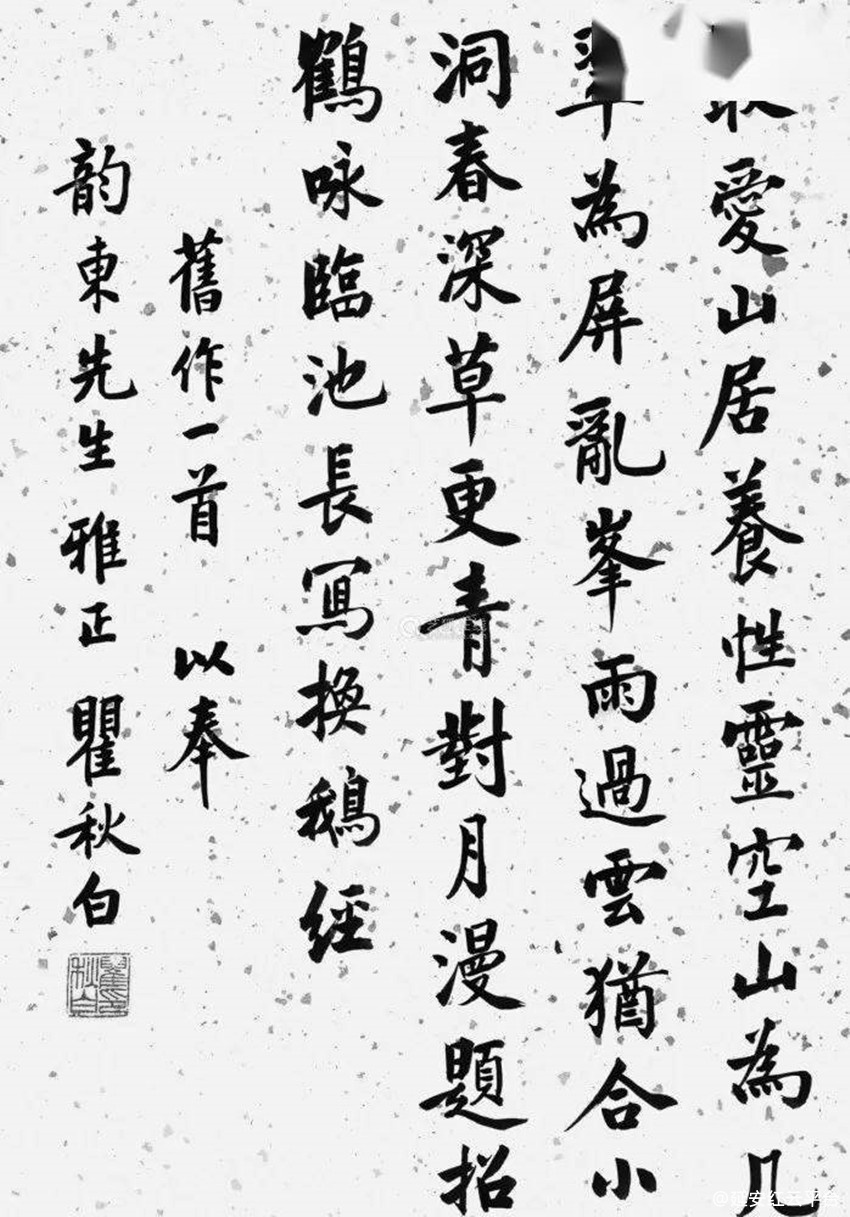 愛山居養性靈空山為几
翠為屏亂峯雨過雲猶合小
洞春深草更青對月漫題招
鶴咏臨池長寫換鵝經
舊作一首 以奉
韵東先生 雅正 瞿秋白
@延安红云平台